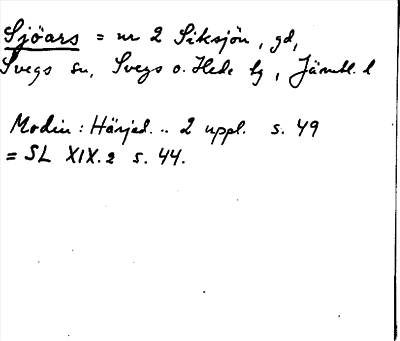 Sjöars = nr 2 Siksjön, gd,
Svegs sn, Svegs o. Hede tg, Jämtl. l
Modin: Härjed. .. 2 uppl. s. 49
= SL XIX.2 s. 44.